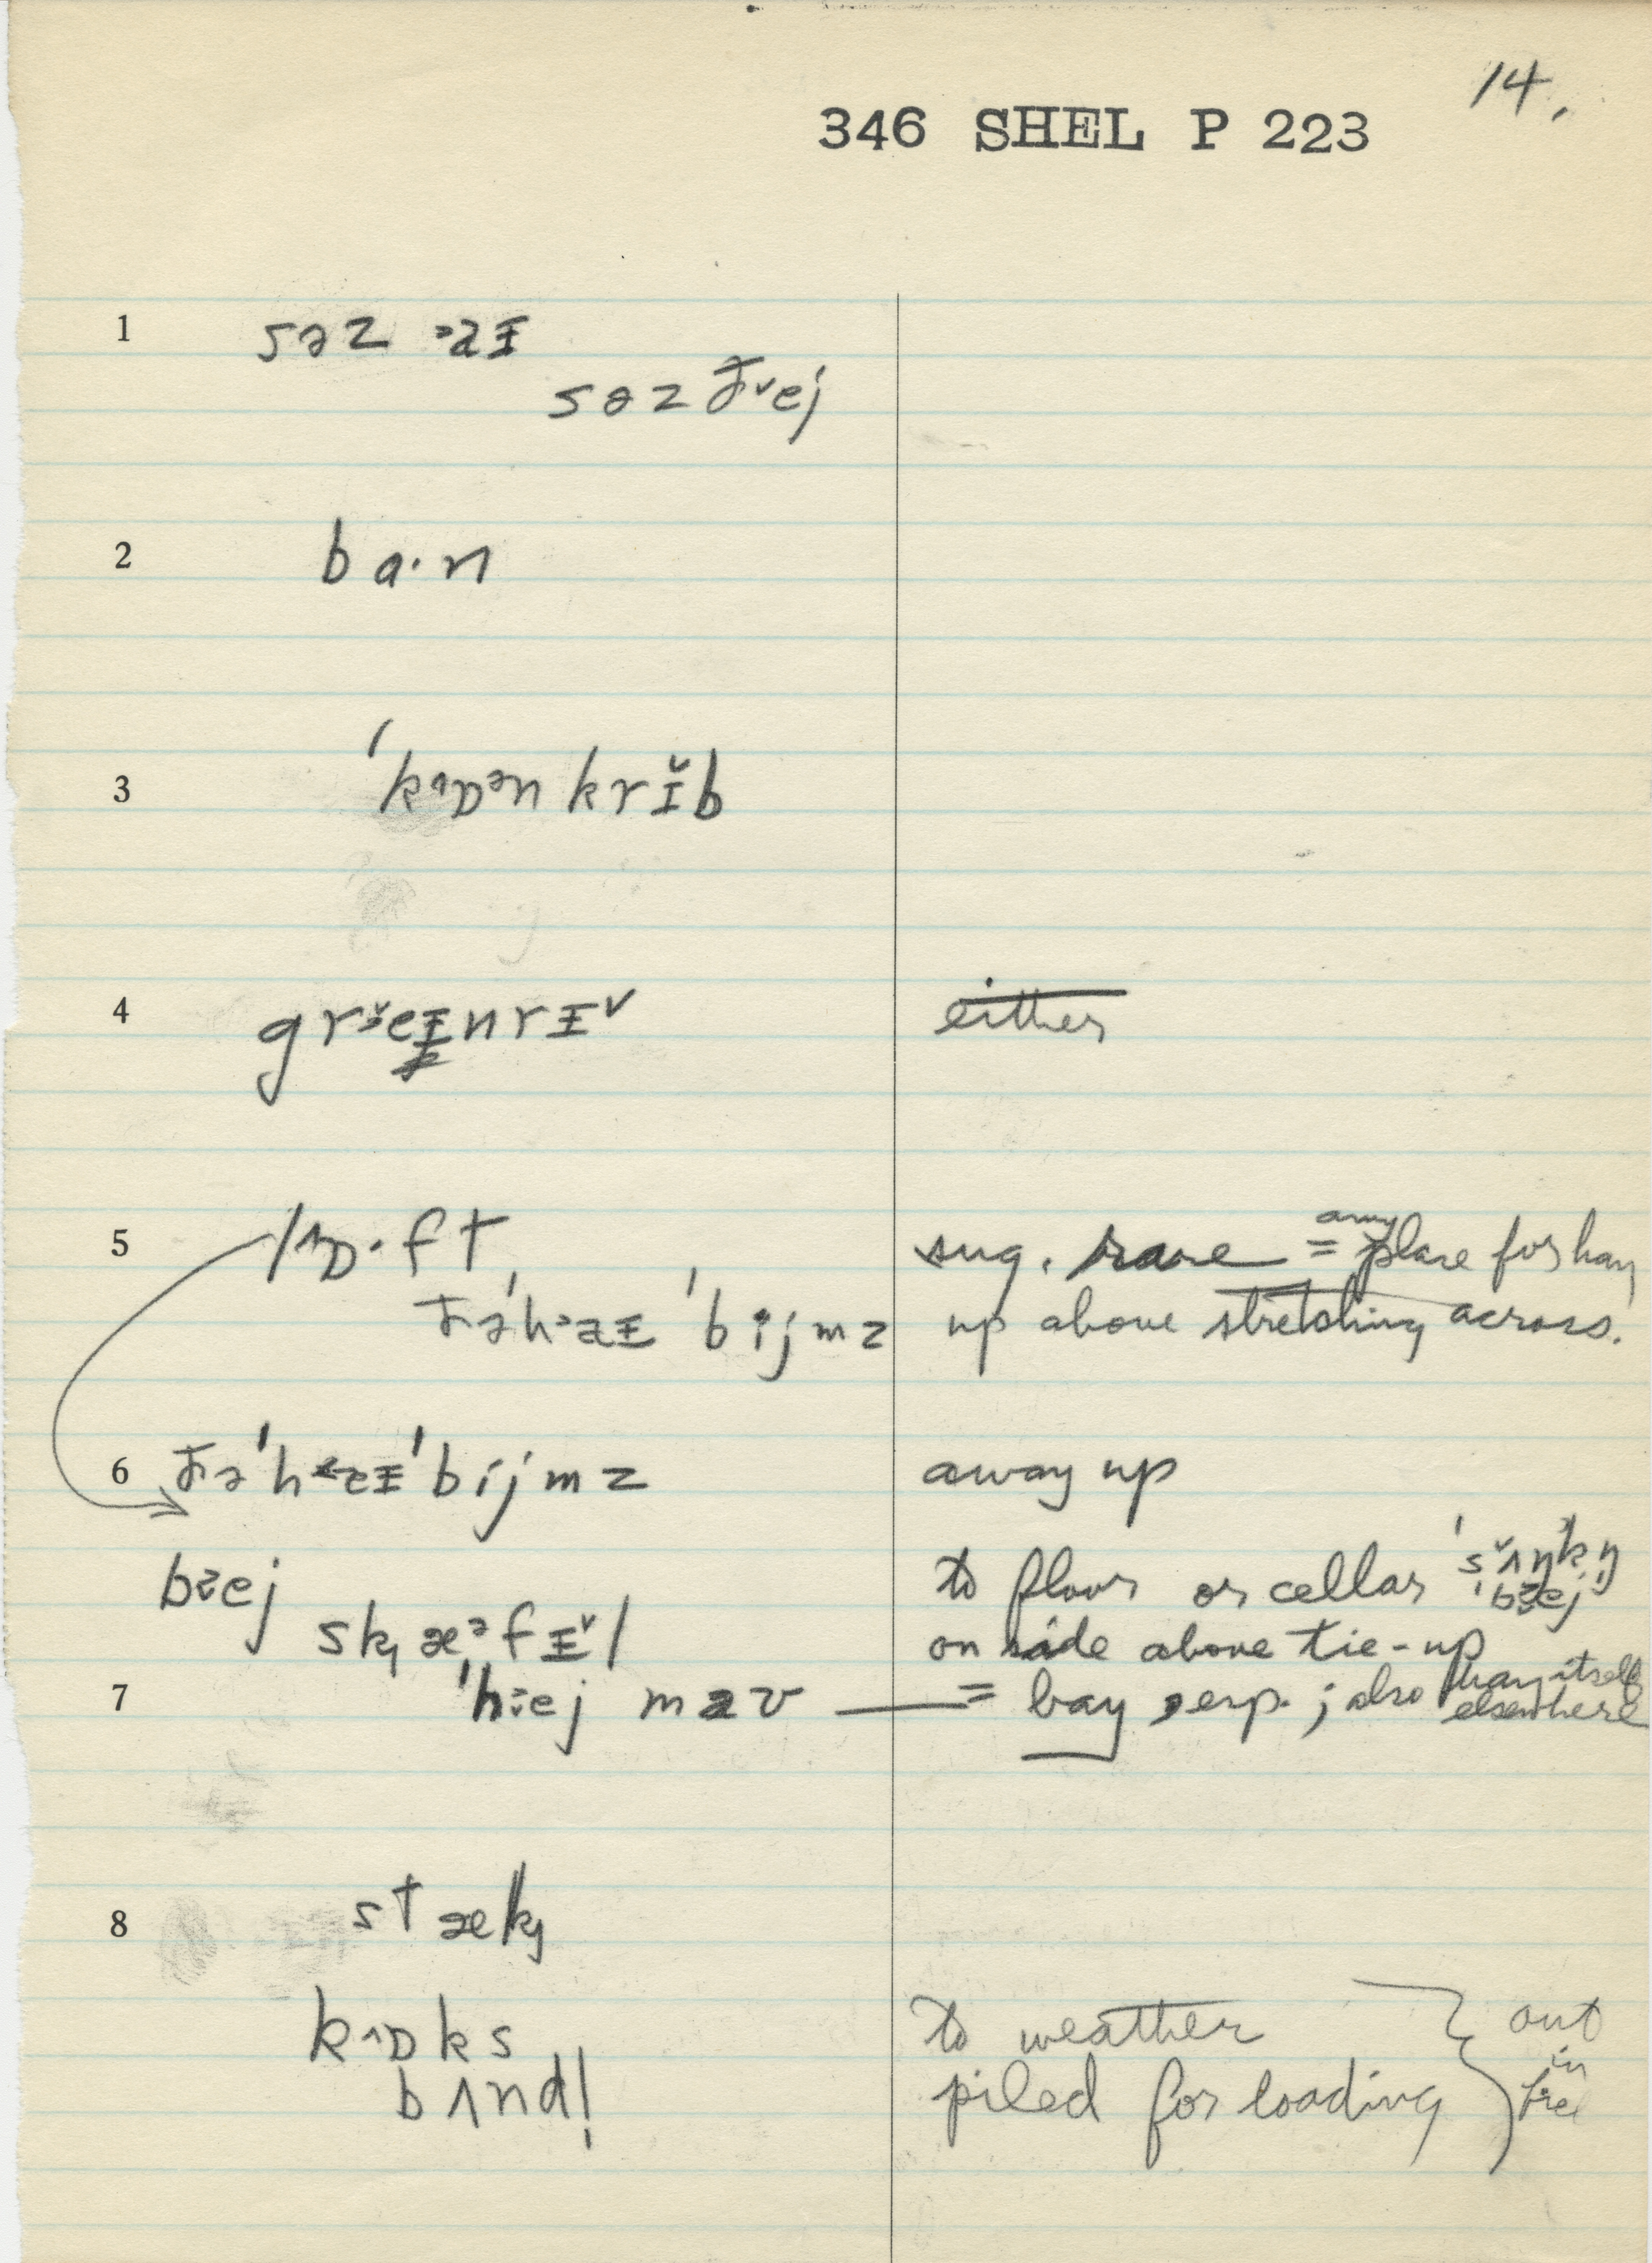 14.
346 SHEL P 223
1 səz ᵊaɪ
səz ðˇej
2 ba·n
3 ˈkᶺɒᵊn krɪ̌b
4 either
5 lᶺɒ·ft sug. rare = any place for hay
ðəˈhᵊaɪ ˈbijmz up above stretching across.
6 ðəˈh ˈbijmz away up
bɜej to floor or cellar
skæᵊfɪˇl on side above tie-up
7 ˈhɜej maʊ — = bay, esp.; also hay itself elsewhere
8 stæk
kᶺɒks to weather out
in
bʌndl̩ piled for loading